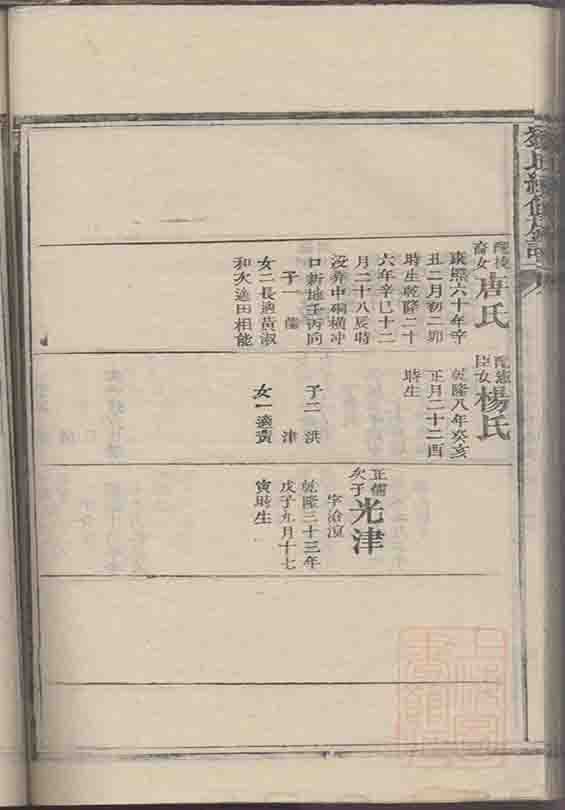 續修族譜
配梭
畲女
唐氏
康熙六十年辛
丑二月初二卯
時生乾隆二十
六年辛巳十二
月二十八辰時
沒葬中硐橫冲
口新地壬丙向
子一　儒
女二長適黃淑
和次適田相能
配憲
臣女
楊氏
乾隆八年癸亥
正月二十二酉
時生
子二　洪
津
女一適黃
正儒
次子
光津
字滄
乾隆三十三年
戊子九月十七
寅時生
上海圖
書館藏